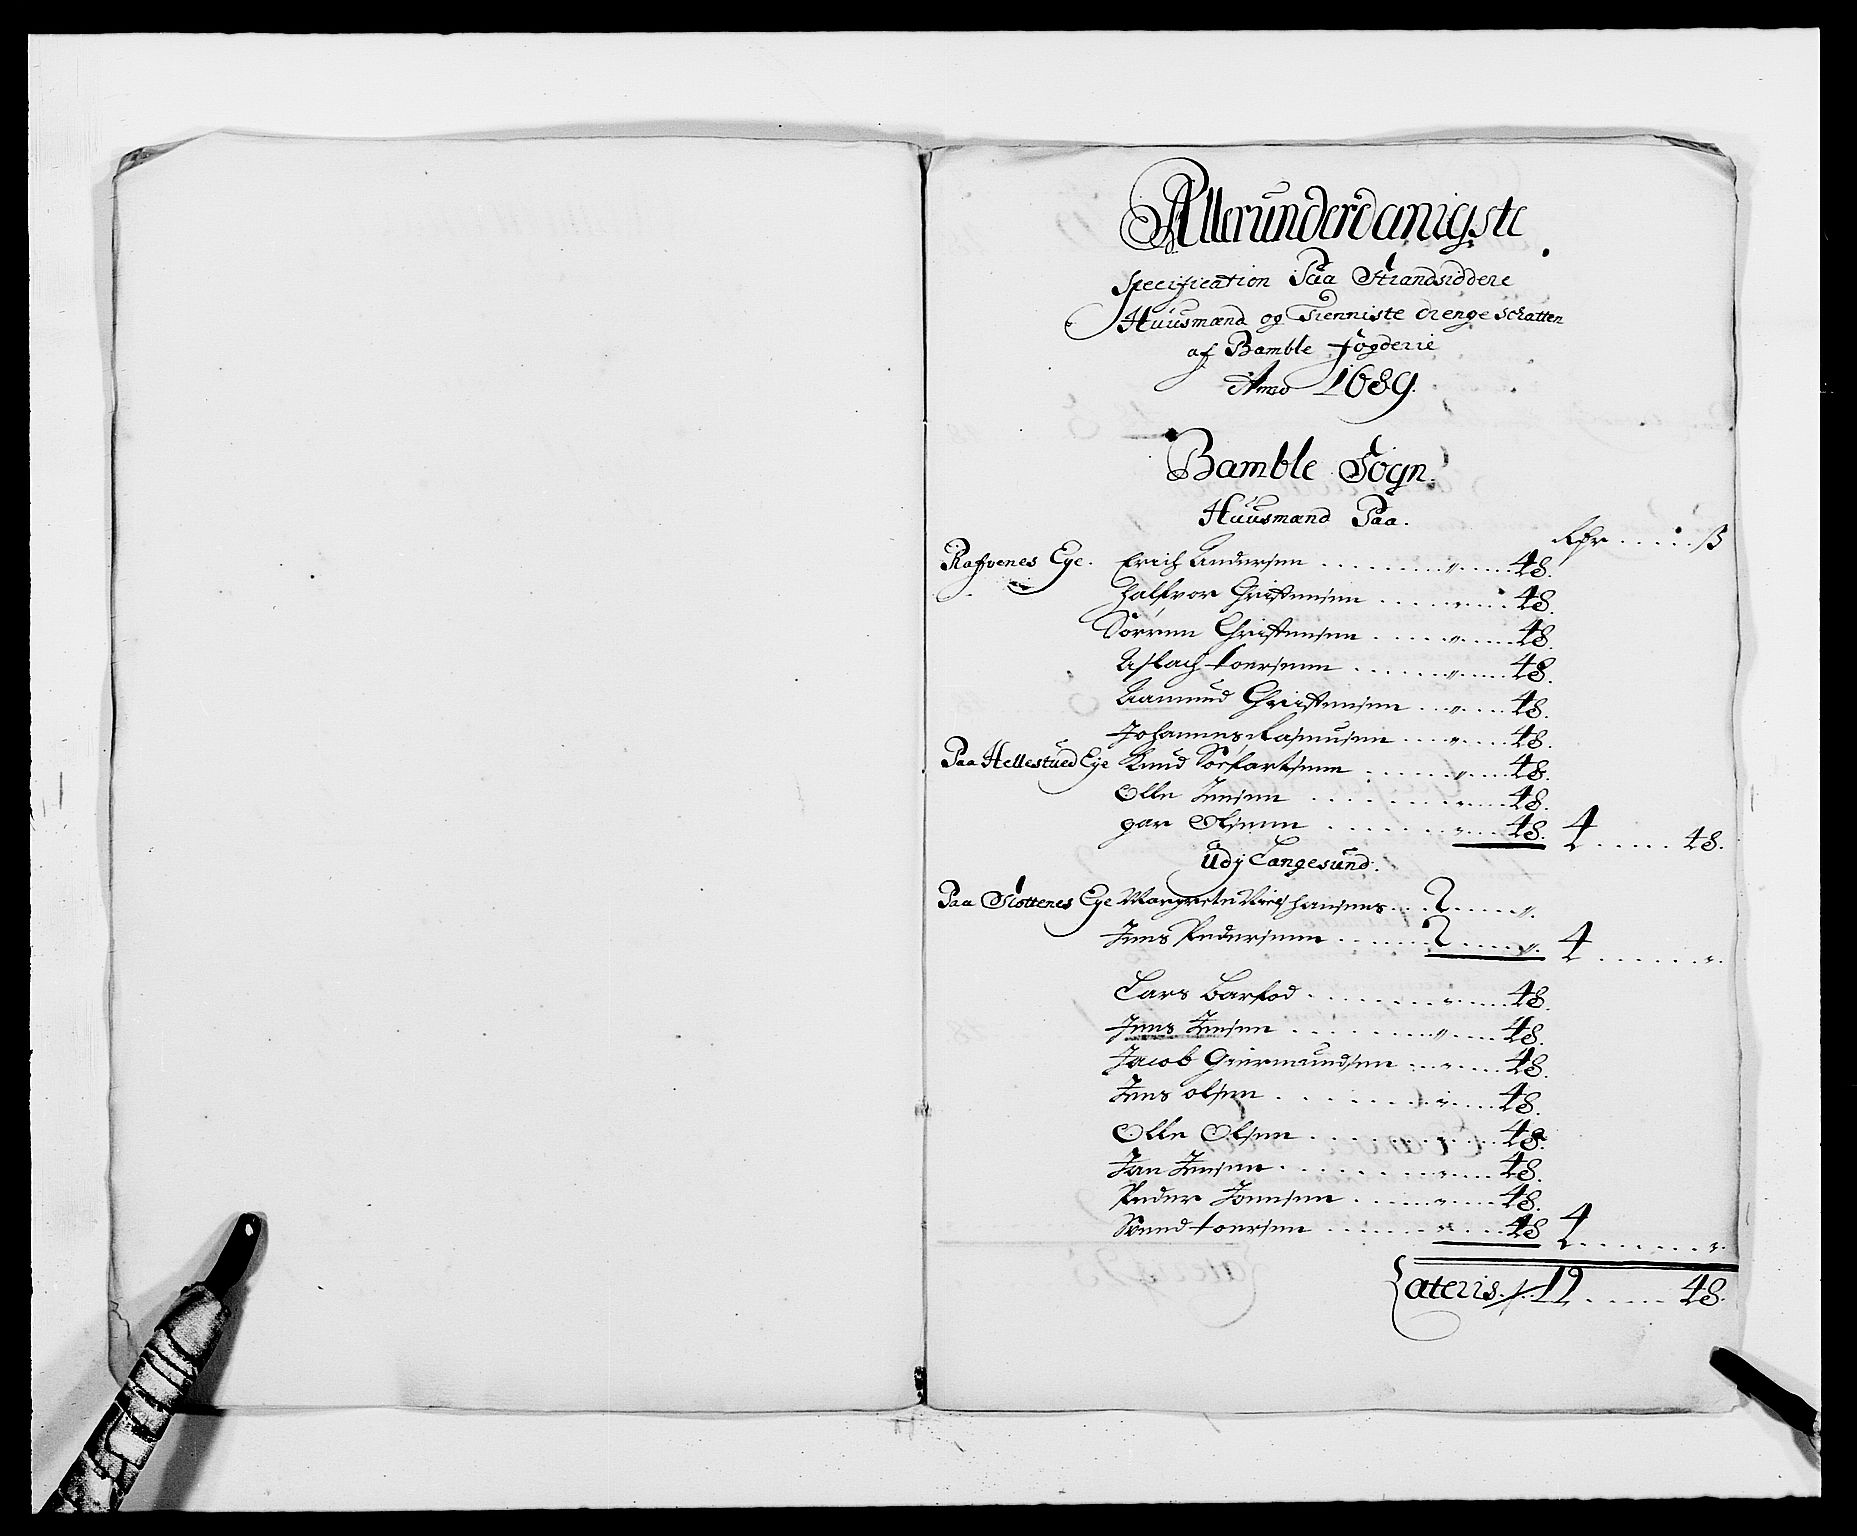 Allerunderdanigste
Specification Paa Strandsiddere
Huusmænd og Tienniste drenge Schatten
af Bamble fögderie
Anno 1689.
Bamble Sogn.
Huusmænd Paa.
Rdr ..... ß
Rafvenes Eye. Erich Andersen ......... " .... 48.
Halfvor Christensen ..... " .... 48.
Sörren Christensen ..... " ..... 48.
Aslach toersenn ...... " ..... 48.
Aamund Christensen ... " .... 48.
Johannes Rasmusen .... " .... 48.
Paa Hellestued Eye Knud Sörfartsenn ...... " .... 48.
Olle Jensen ....... " .... 48.
Olsenn ....... " .... 48. 4 ..... 48.
Udj Langesund.
Paa Slottenes Eye Margrete Niels Hansens ... 2 ..... ".
Jens Pedersenn ...... 2 ..... ". 4 ...... ".
Lars Barfod ........ " ..... 48.
Jens Jensen ........ " .... 48.
Jacob Giermundsen ... " .... 48.
Jens olsen ........ " .... 48.
Olle Olsen ........ " .... 48.
Jan Jensen ........ " .... 48.
Peder Jannsen ..... " .... 48.
Svend toersen ...... " .... 48 4 ....... ".
Lateris 12 ..... 48.